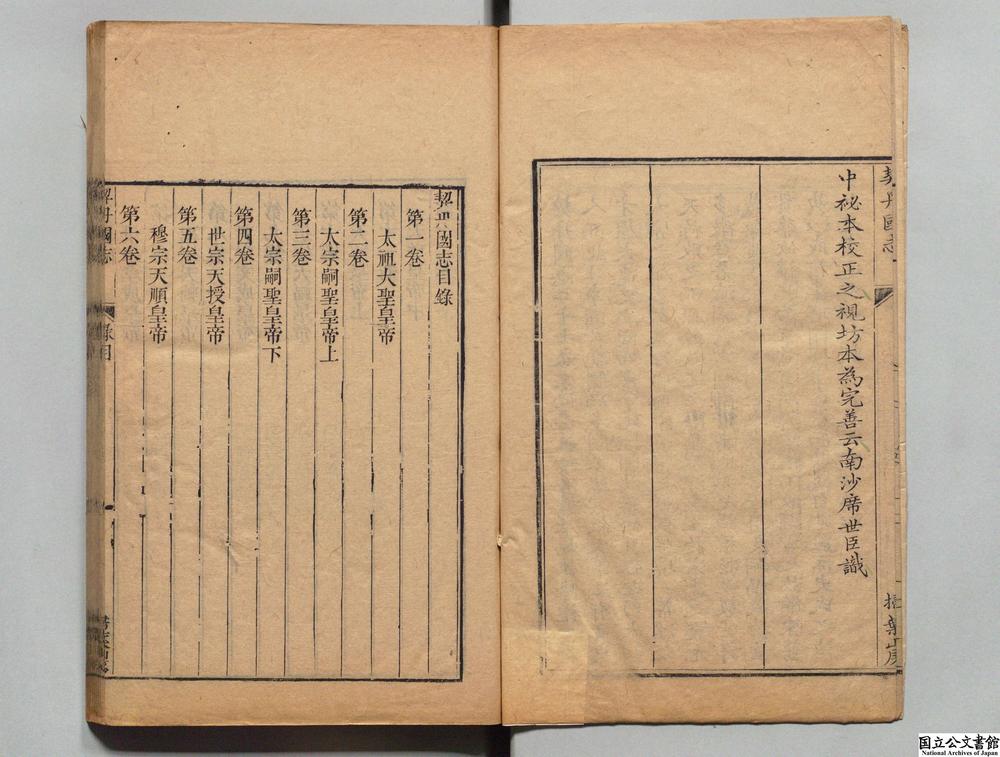 契丹國志
掃葉山房
中祕本校正之視坊本為完善云南沙席世臣識
契丹國志目錄
第一卷
太祖大聖皇帝
第二卷
太宗嗣聖皇帝上
第三卷
太宗嗣聖皇帝下
第四卷
世宗天授皇帝
第五卷
穆宗天順皇帝
第六卷
契丹國志
目錄
国立公文書館
National Archives of Japan